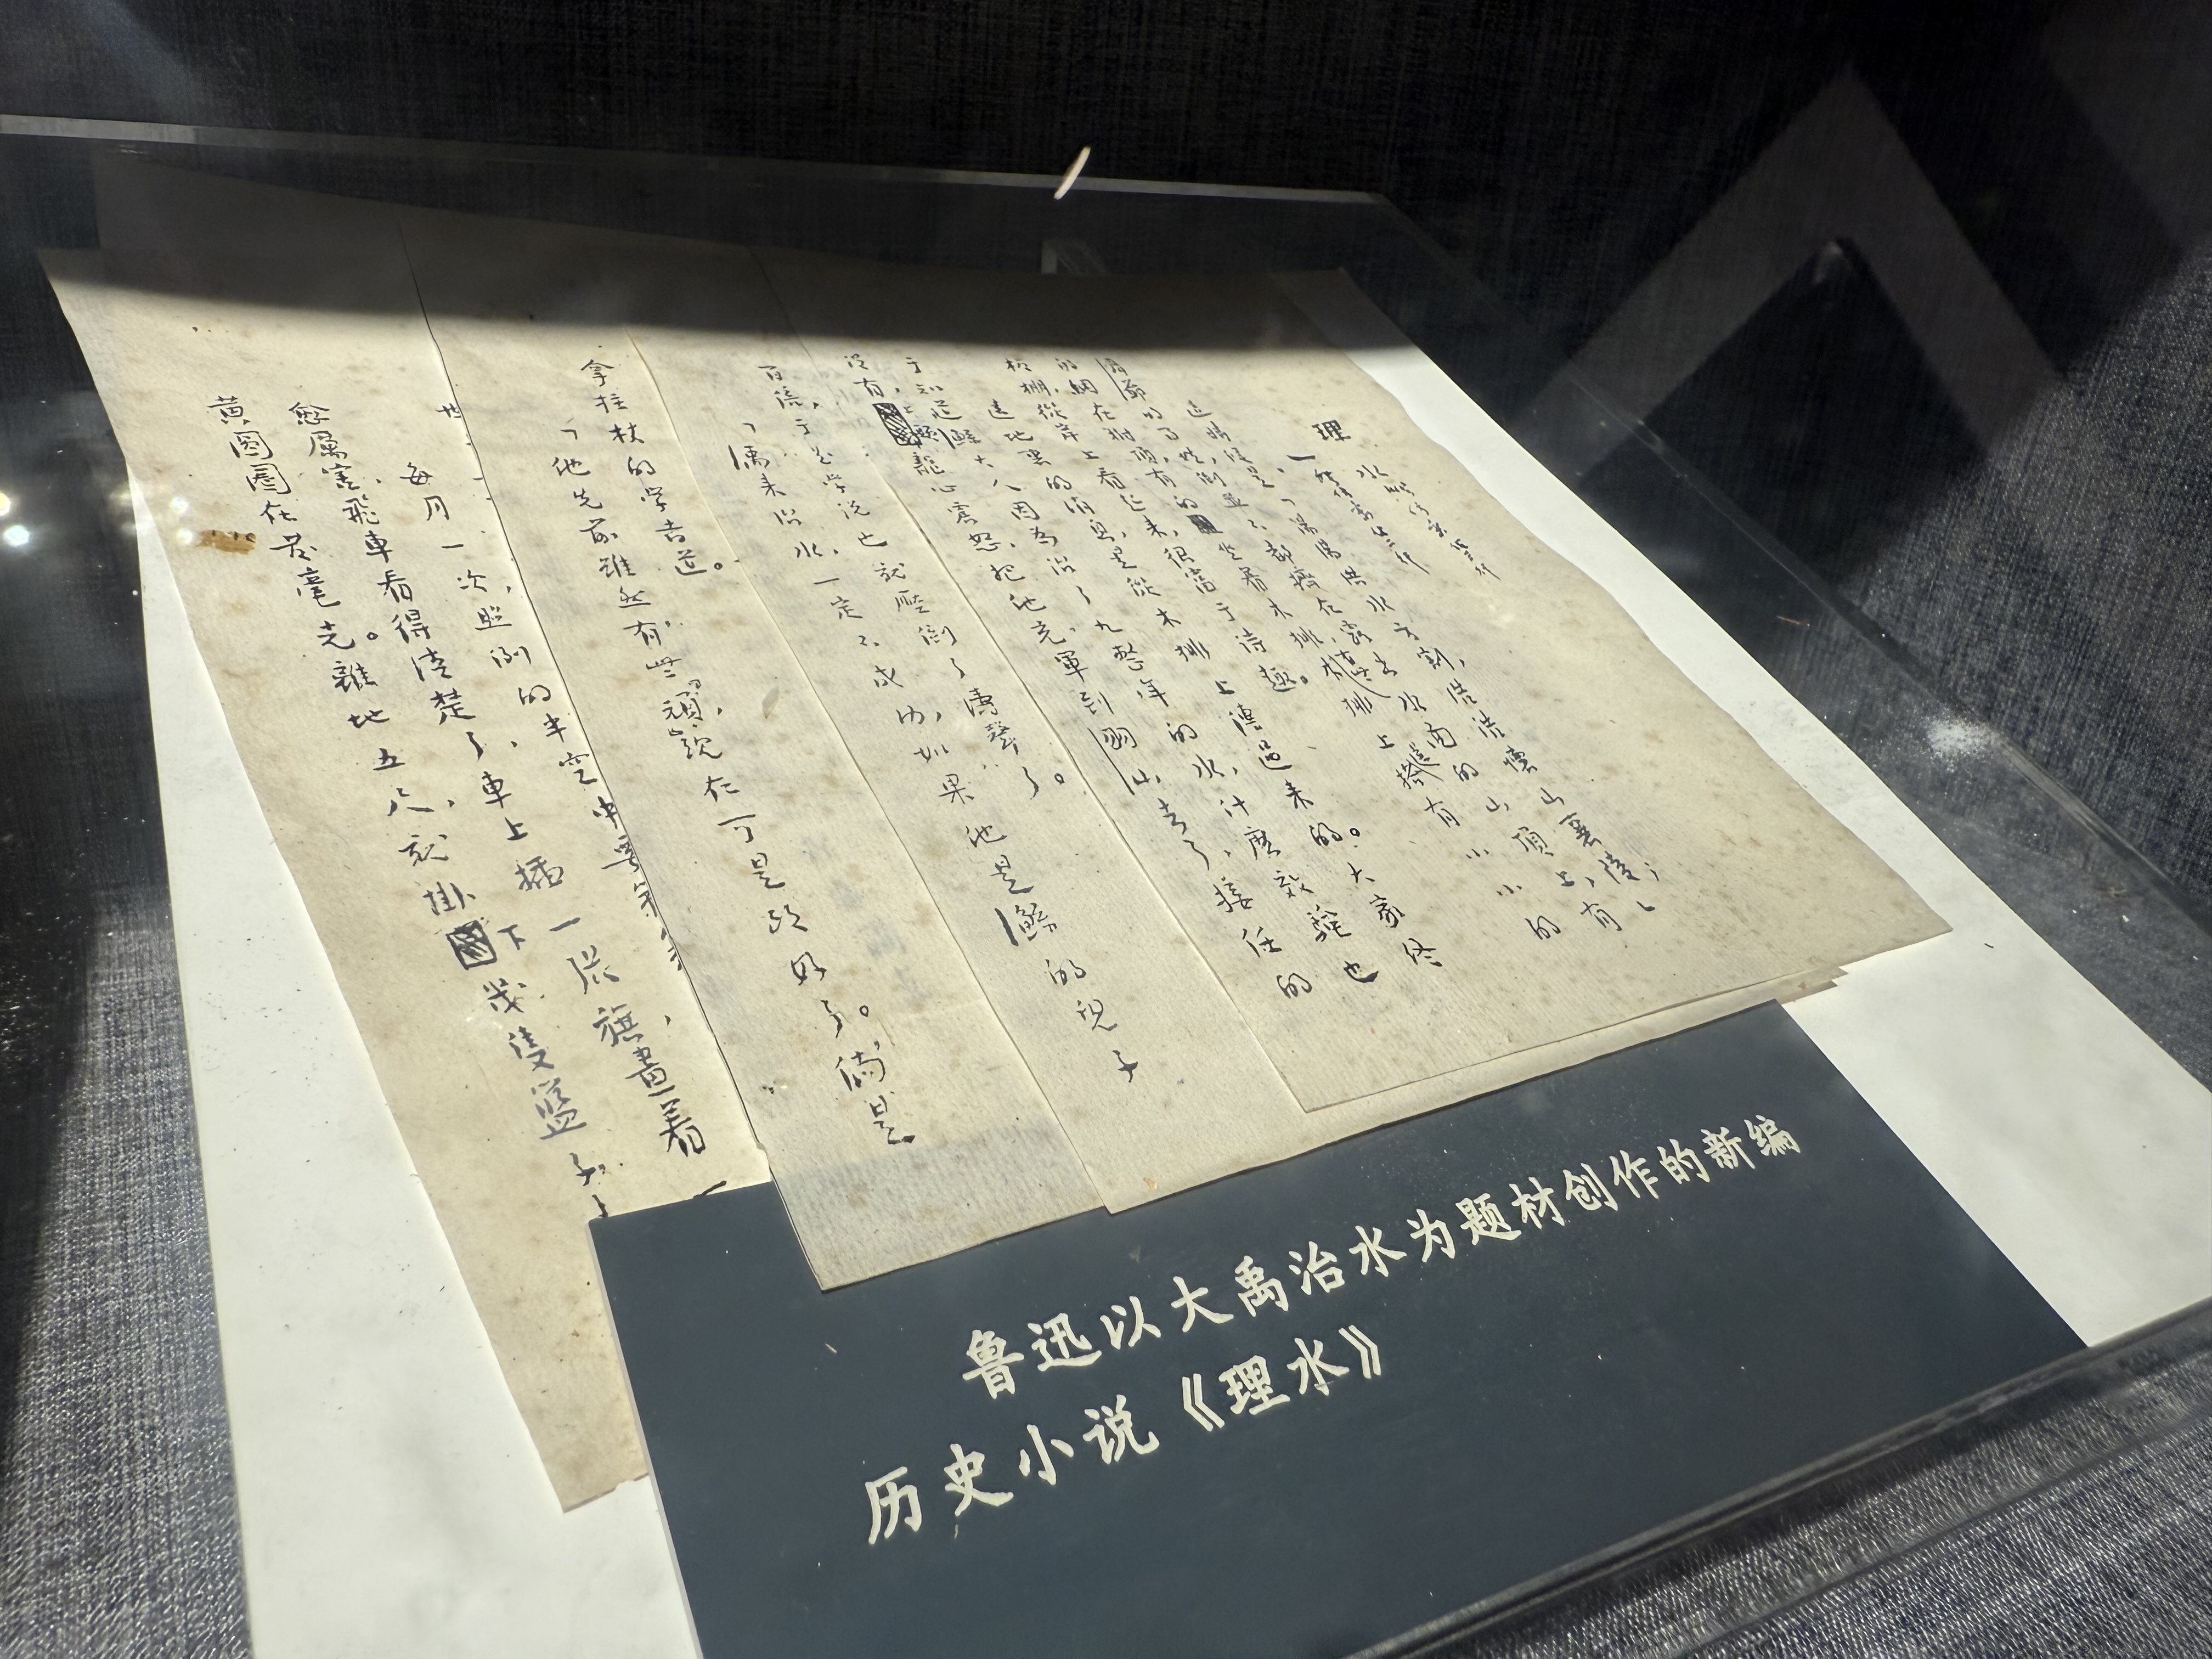 理水
一
這時候是「湯湯洪水方割,浩浩懷山襄陵;」
舜爺的百姓,倒並不都擠在露出水面的山頂上,有
的綑在樹頂,有的坐着木排,有些木排上搭有小小的
板棚,從岸上看起来,很富于詩趣。
遠地里的消息,是從木排上傳過来的。大家終
于知道鯀大人因為治了九整年的水,什麽效驗也
沒有,上頭龍心震怒,把他充軍到羽山去了,接任的
百倍,于是学说也就壓倒了濤聲了。
「禹来治水,一定不成功,如果他是鯀的兒子
拿拄杖的学者道。
「他先前雖然有些頑,現在可是改好了。倘是
每月一次,照例的半空中要
愈厲害,飛車看得清楚了,車上插一張旗,畫着一
黄圓圈在發毫光。離地五尺,就掛下幾隻籃子
鲁迅以大禹治水为题材创作的新编
历史小说《理水》